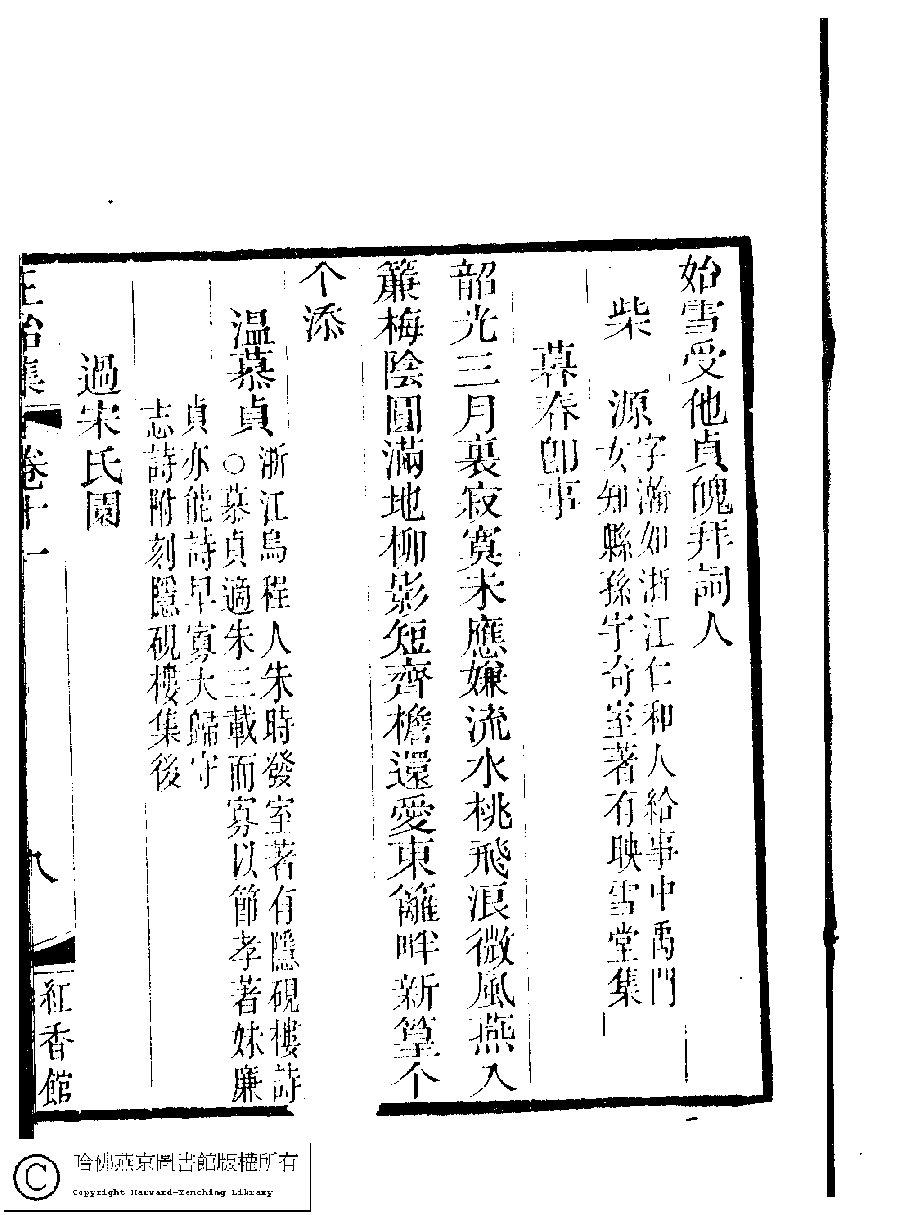 始雪受他貞魄拜詞人
柴　源
字瀚如浙江仁和人給事中禹門
女知縣孫宇奇室著有映雪堂集
暮春即事
韶光三月裏寂寞未應嫌流水桃飛浪微風燕入
簾梅陰圓滿地柳影短齊檐還愛東籬畔新篁个
个添
温慕貞
浙江烏程人朱時發室著有隱硯樓詩
○慕貞適朱三載而寡以節孝著妹廉
貞亦能詩早寡大歸守
志詩附刻隱硯樓集後
過宋氏園
正始集
卷十一
九
紅香館
哈佛燕京圖書館版權所有
Copyright Harvard-Yenching Library